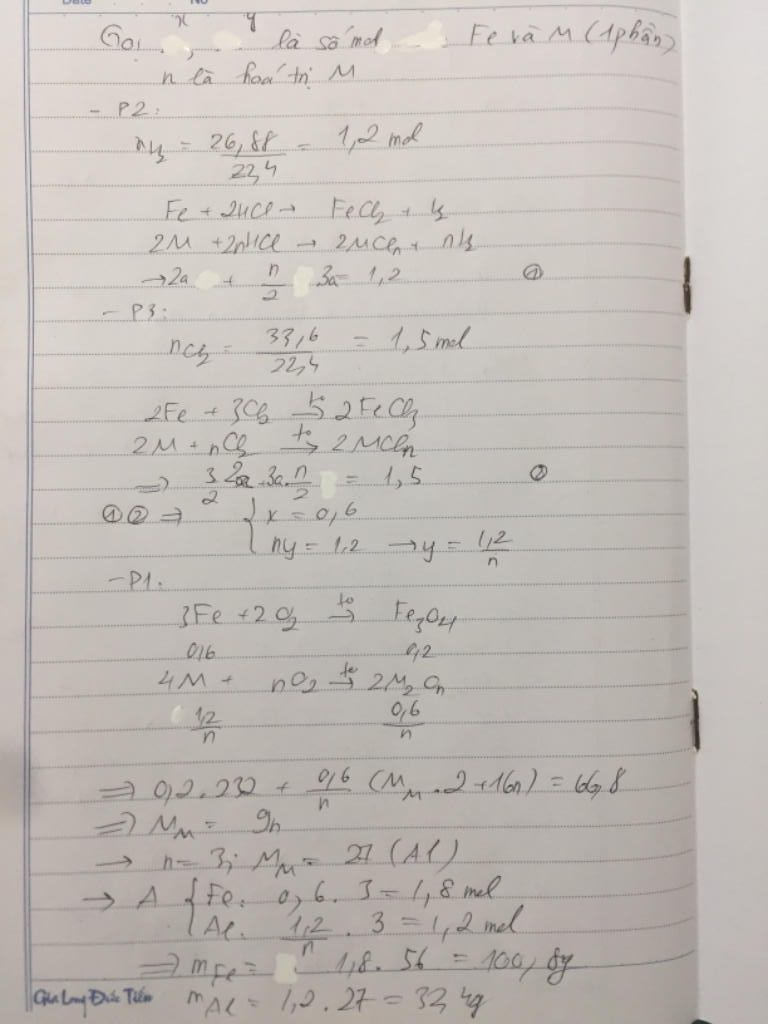 x y
Gọi , là số mol Fe và M (1 phần)
n là hoá trị M
- P2:
nH2 = 26,88/22,4 = 1,2 mol
Fe + 2HCl → FeCl2 + H2
2M + 2nHCl → 2MCln + nH2
→ 2a + n/2 3a = 1,2 ①
- P3:
nCl2 = 33,6/22,4 = 1,5 mol
2Fe + 3Cl2 t° → 2FeCl3
2M + nCl2 t° → 2MCln
⇒ 3/2 3a. n/2 = 1,5 ②
①② ⇒ { x = 0,6
ny = 1,2 → y = 1,2/n
- P1:
3Fe + 2O2 t° → Fe3O4
0,6 0,2
4M + nO2 t° → 2M2On
1,2/n 0,6/n
⇒ 0,2.232 + 0,6/n (MM.2 + 16n) = 66,8
⇒ MM = 9n
→ n = 3; MM = 27 (Al)
→ A { Fe: 0,6 . 3 = 1,8 mol
Al: 1,2/n . 3 = 1,2 mol
⇒ mFe = 1,8 . 56 = 100,8g
Gia Long Đức Tiến
mAl = 1,2 . 27 = 32,4g